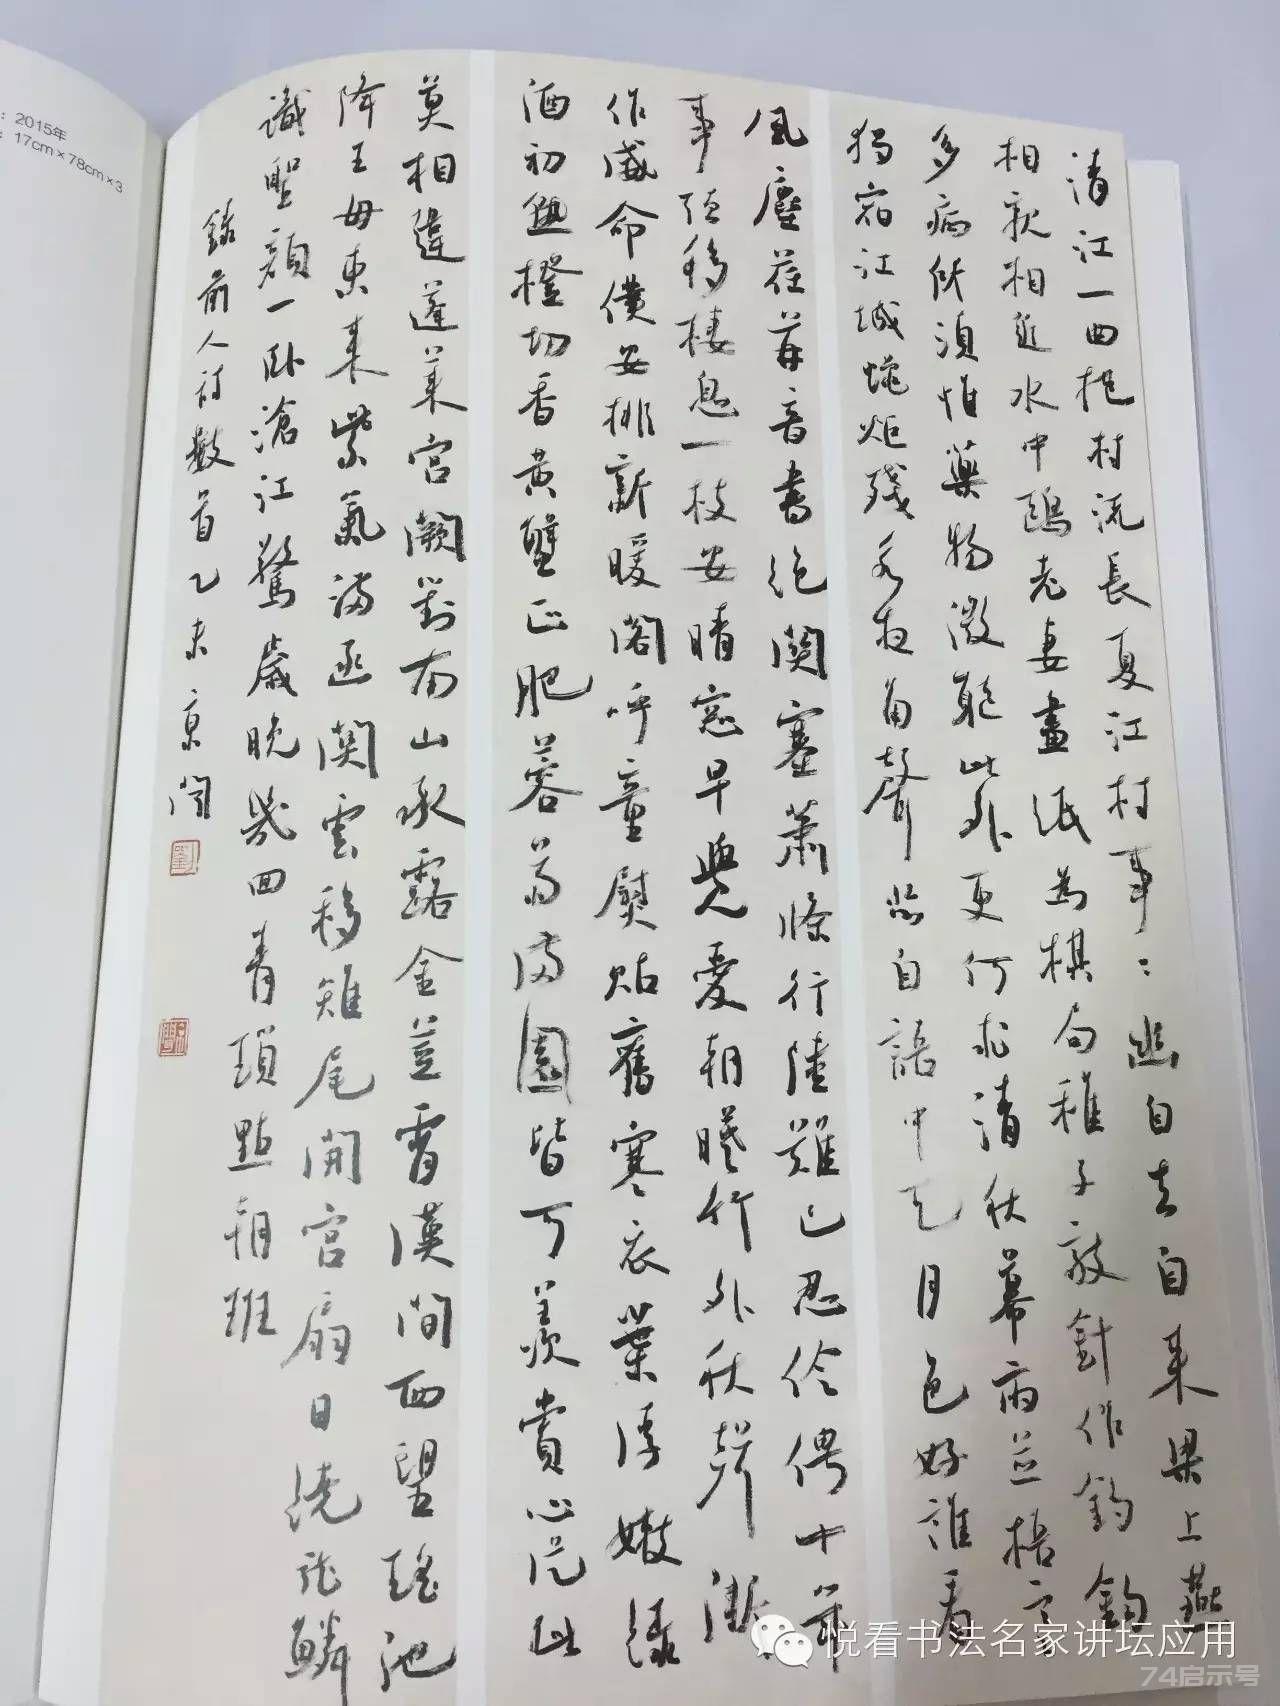 ：2015年
：17cm×78cm×3
清江一曲抱村流長夏江村事〻幽自去自來梁上燕
相親相近水中鷗老妻畫紙為棋局稚子敲針作釣鈎
多病所須惟藥物微軀此外更何求清秋幕府井梧寒
獨宿江城蠟炬殘永夜角聲悲自語中天月色好誰看
風塵荏苒音書絕關塞蕭條行陸難已忍伶俜十年
事強移棲息一枝安晴窓早覺愛朝曦竹外秋聲漸
作威命僕安排新暖閣呼童熨貼舊寒衣葉浮嫩綠
酒初熟橙切香黃蟹正肥蓉菊滿園皆可羨賞心從此
莫相違蓬萊宮闕對南山承露金莖霄漢間西望瑤池
降王母東來紫氣滿函關雲移雉尾開宮扇日繞龍鱗
識聖顏一臥滄江驚歲晚幾回青瑣點朝班
錄前人詩數首乙未京聞
悦看书法名家讲坛应用
74启示号